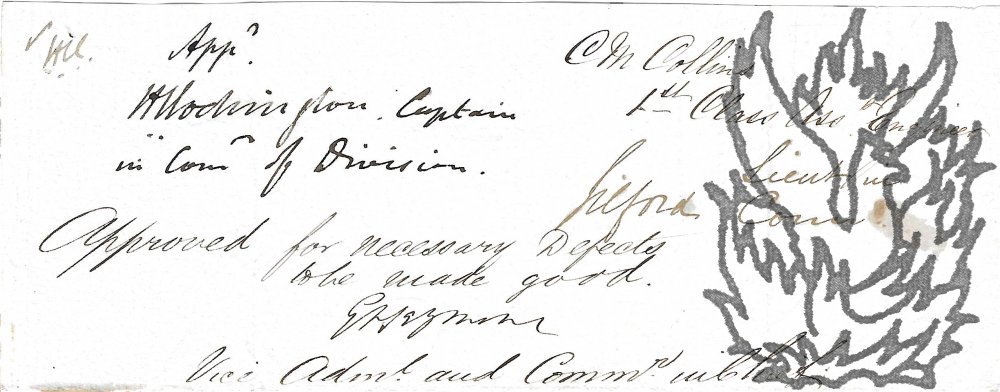 Hil.
Appd.
C M Collins
Captain
1st Class Asst Engineer
in Comd of Division.
Lieut in
Gilford Comd
Approved for necessary Defects
to be made good.
EHSeymour
Vice Adml. and Commr in Chief